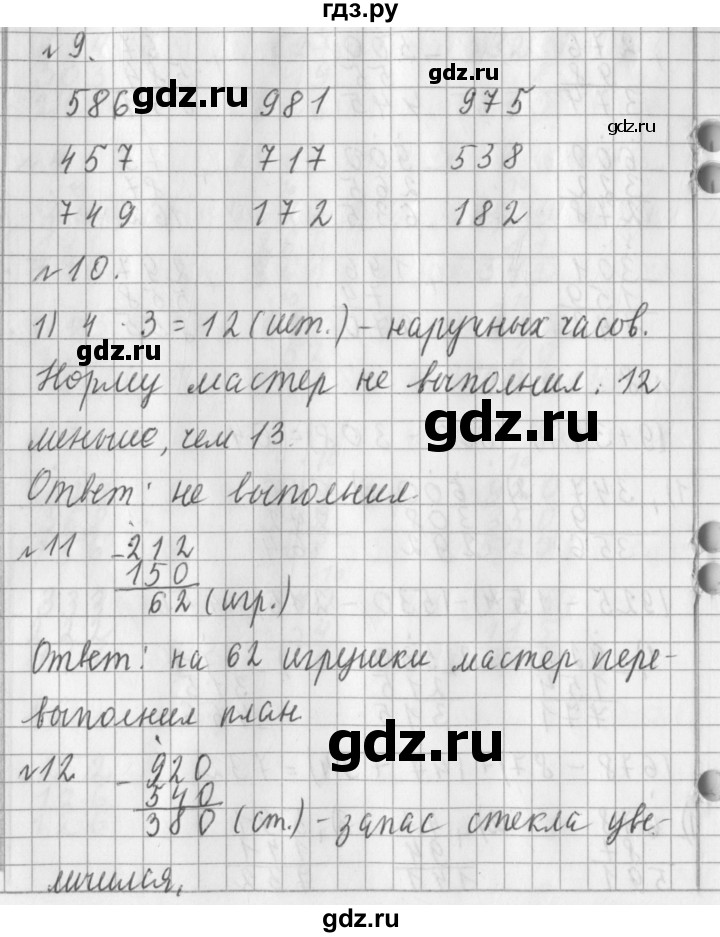 гдз.ру
№9.
586 981 975
gdz.ru
gdz.ru
457 717 538
749 172 182
№10.
1) 4 · 3 = 12 (шт.) - наручных часов.
gdz.ru
Норму мастер не выполнил. 12
gdz.ru
меньше, чем 13.
Ответ: не выполнил.
№11 - 212
150
62 (игр.)
Ответ: на 62 игрушки мастер пере-
выполнил план
gdz.ru
№12 - 920
540
380 (ст.) - запас стекла уве-
личился,
gdz.ru